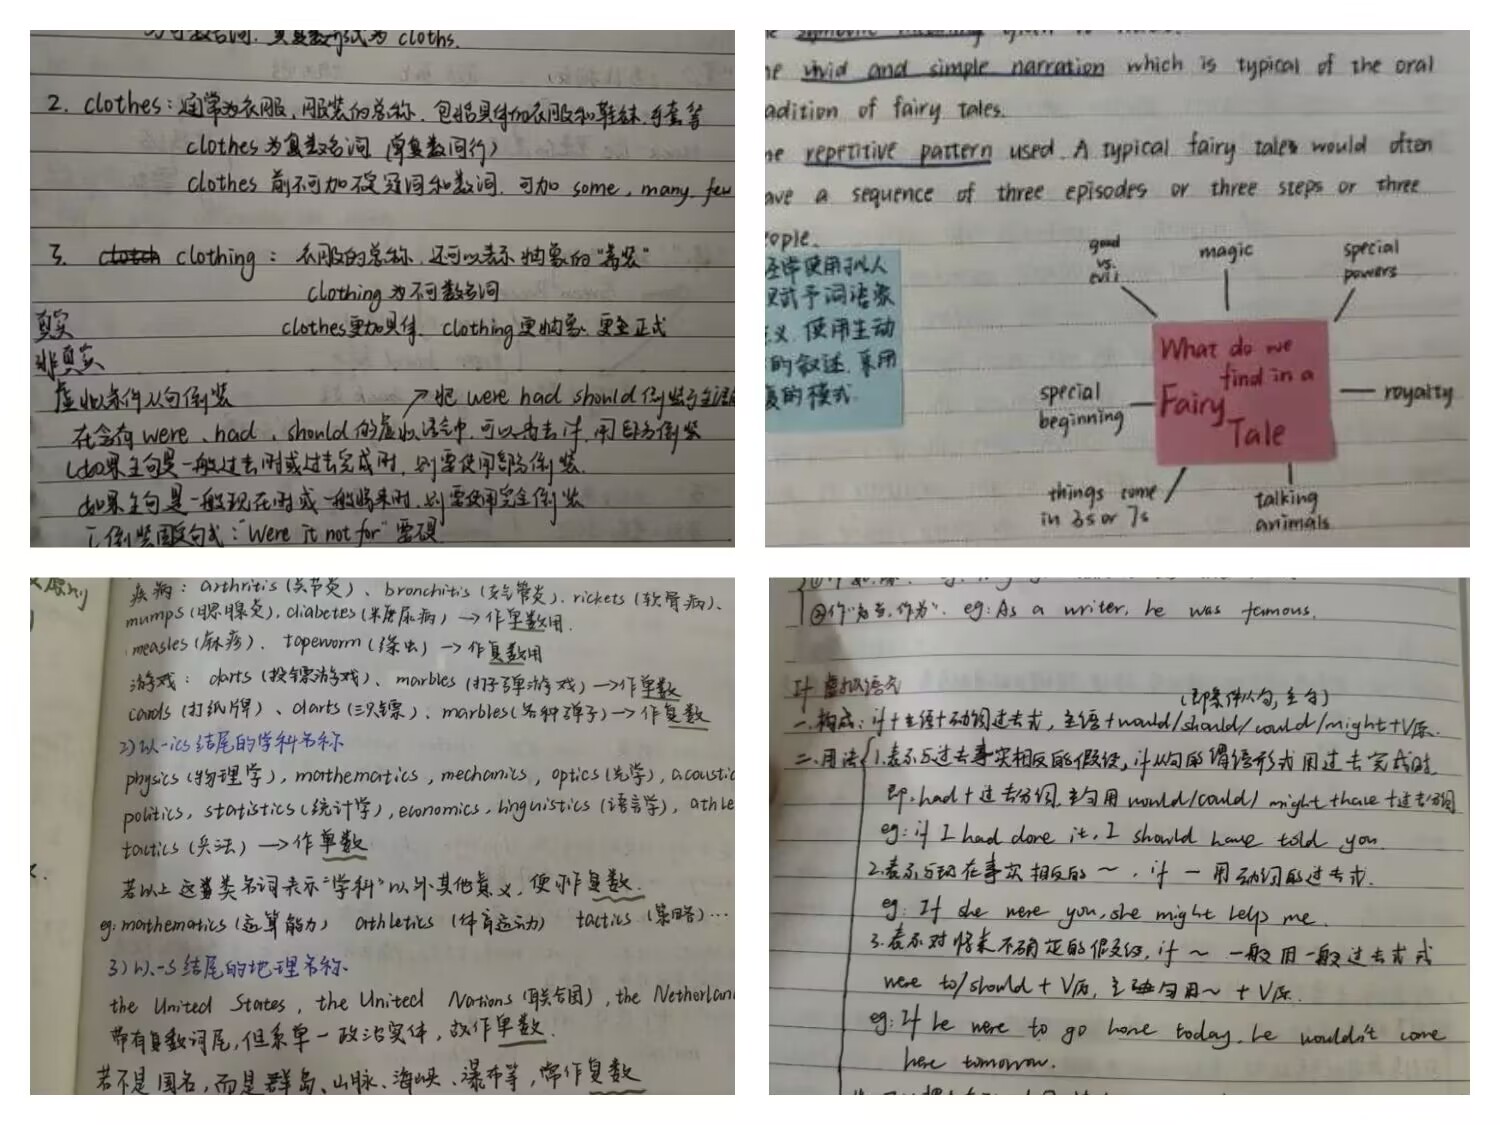 为可数名词，其复数形式为 cloths.
2. clothes：通常为衣服，服装的总称，包括具体如衣服和鞋袜，手套等
clothes 为复数名词（单复数同行）
clothes 前不可加不定冠词和数词，可加 some, many, few
3. clotch clothing：衣服的总称，还可以表示抽象的“着装”
clothing 为不可数名词
clothes更加具体，clothing更抽象，更正式
真实
非真实
虚拟条件从句倒装
↗把 were had should 倒装于主语
在含有 were、had、should 的虚拟语气中，可以省去 if，用部分倒装
如果主句是一般过去时或过去完成时，则要使用部分倒装.
如果主句是一般现在时或一般将来时，则要使用完全倒装
倒装固定句式：“Were it not for” 要硬
vivid and simple narration which is typical of the oral
adition of fairy tales.
repetitive pattern used. A typical fairy tales would often
ave a sequence of three episodes or three steps or three
eople.
经常使用拟人
赋予词语象
义，使用生动
的叙述，采用
复的模式.
good
vs.
evil
magic
special
powers
What do we
find in a
Fairy
Tale
special
beginning
royalty
things come
in 3s or 7s
talking
animals
疾病：arthritis (关节炎)、bronchitis (支气管炎), rickets (软骨病)、
mumps (腮腺炎), diabetes (糖尿病) → 作单数用.
measles (麻疹)、tapeworm (绦虫) → 作复数用
游戏：darts (投镖游戏)、marbles (打子弹游戏) → 作单数
cards (打纸牌)、darts (三只镖)、marbles (各种弹子) → 作复数
2) 以-ics 结尾的学科名称
physics (物理学), mathematics, mechanics, optics (光学), acoustic
politics, statistics (统计学), economics, linguistics (语言学), athle
tactics (兵法) → 作单数
若以上这类名词表示“学科”以外其他意义，便可作复数.
eg: mathematics (运算能力) athletics (体育运动) tactics (策略)…
3) 以-s 结尾的地理名称.
the United States, the United Nations (联合国), the Netherlan
带有复数词尾，但系单一政治实体，故作单数.
若不是国名，而是群岛、山脉、海峡、瀑布等，常作复数
②作“为当，作为”. eg: As a writer, he was famous.
If 虚拟语气
(即条件从句, 主句)
一. 构成：if+主语+动词过去式，主语+would/should/could/might+V原.
二. 用法 1.表示与过去事实相反的假设，if从句的谓语形式用过去完成时
即：had+过去分词，主句用 would/could/might+have+过去分词
eg: if I had done it, I should have told you.
2.表示与现在事实相反的～，if 一用动词的过去式.
eg: If she were you, she might help me.
3.表示对将来不确定的假设，if～一般用一般过去式或
were to/should + V原，主句用～ + V原.
eg: If he were to go home today, he wouldn't come
here tomorrow.